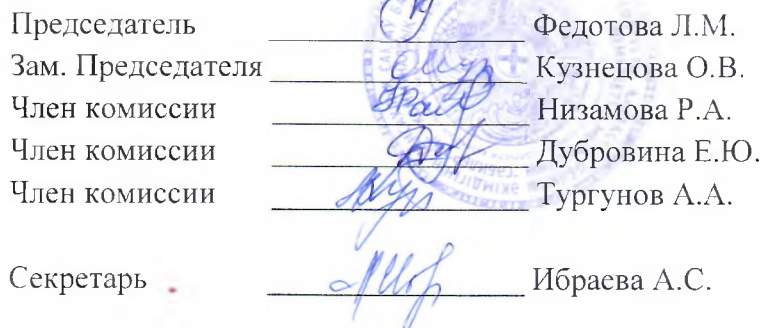 Председатель Федотова Л.М.
Зам. Председателя Кузнецова О.В.
Член комиссии Низамова Р.А.
Член комиссии Дубровина Е.Ю.
Член комиссии Тургунов А.А.
Секретарь Ибраева А.С.